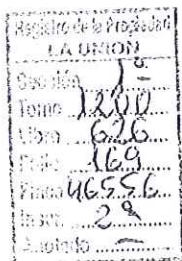 Registro de la Propiedad
LA UNION
Sección 1ª
Tomo 1200
Libro 626
Folio 169
Finca 46556
Inscr. 2ª
Anotado —